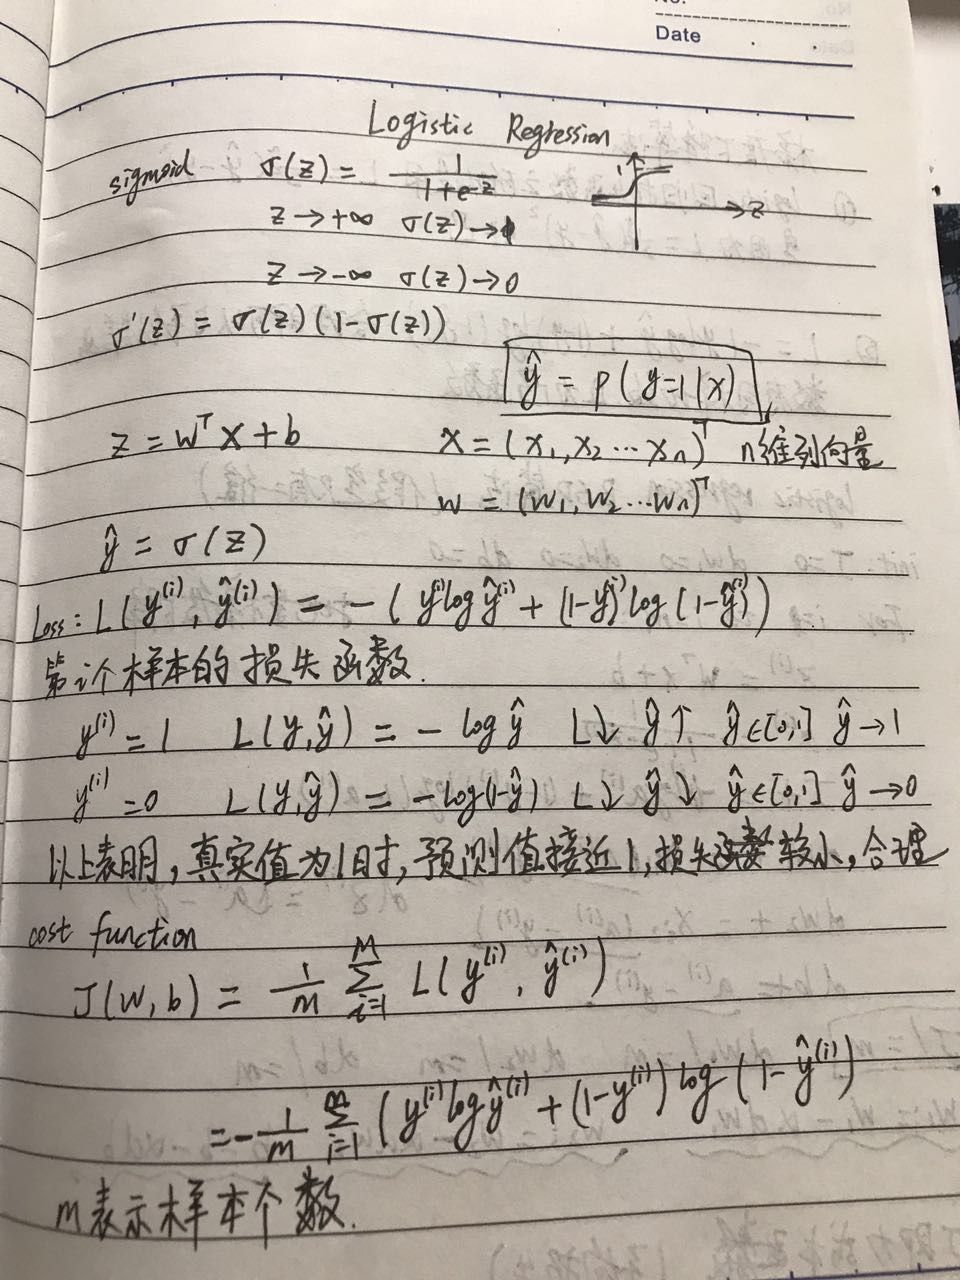 No.
Date
Logistic Regression
sigmoid σ(z) = 1/(1+e^-z)
1 z
z → +∞ σ(z) → 1
z → -∞ σ(z) → 0
σ'(z) = σ(z)(1-σ(z))
ŷ = p(y=1|x)
z = w^T x + b x = (x₁, x₂ ... xₙ)^T n维列向量
w = (w₁, w₂ ... wₙ)^T
ŷ = σ(z)
Loss: L(y^(i), ŷ^(i)) = -(y^(i) log ŷ^(i) + (1-y^(i)) log(1-ŷ^(i)))
第i个样本的损失函数.
y^(i) = 1 L(y,ŷ) = -log ŷ L↓ ŷ↑ ŷ∈[0,1] ŷ→1
y^(i) = 0 L(y,ŷ) = -log(1-ŷ) L↓ ŷ↓ ŷ∈[0,1] ŷ→0
以上表明,真实值为1时,预测值接近1,损失函数较小,合理
cost function
J(w,b) = 1/m Σ_{i=1}^{m} L(y^(i), ŷ^(i))
= -1/m Σ_{i=1}^{m} (y^(i) log ŷ^(i) + (1-y^(i)) log(1-ŷ^(i))
m表示样本个数.